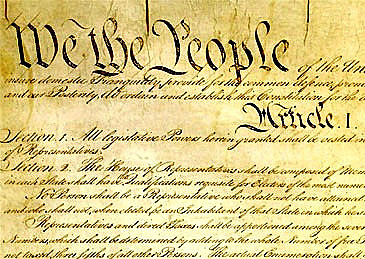 We the People of the Uni
insure domestic Tranquility, provide for the common defence, prom
and our Posterity, do ordain and establish this Constitution for the
Article. I
Section. 1. All legislative Powers herein granted shall be vested in
of Representatives.
Section. 2. The House of Representatives shall be composed of Mem
in each State shall have the Qualifications requisite for Electors of the most nume
No Person shall be a Representative who shall not have attained
and who shall not, when elected, be an Inhabitant of that State in which he s
Representatives and direct Taxes shall be apportioned among the seve
Numbers, which shall be determined by adding to the whole Number of free P
not taxed, three fifths of all other Persons. The actual Enumeration shall